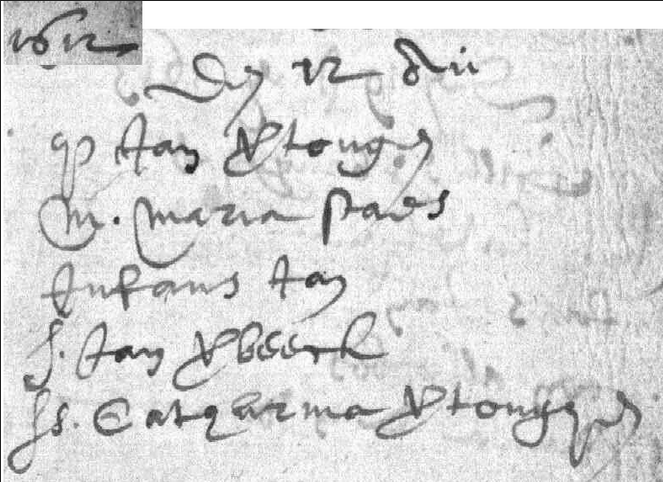 1612
Dij 12 dit
p Jan Vtongen
m. maria paes
Infans Jan
s. Jan Vbeeck
ss. Catharina Vtongen